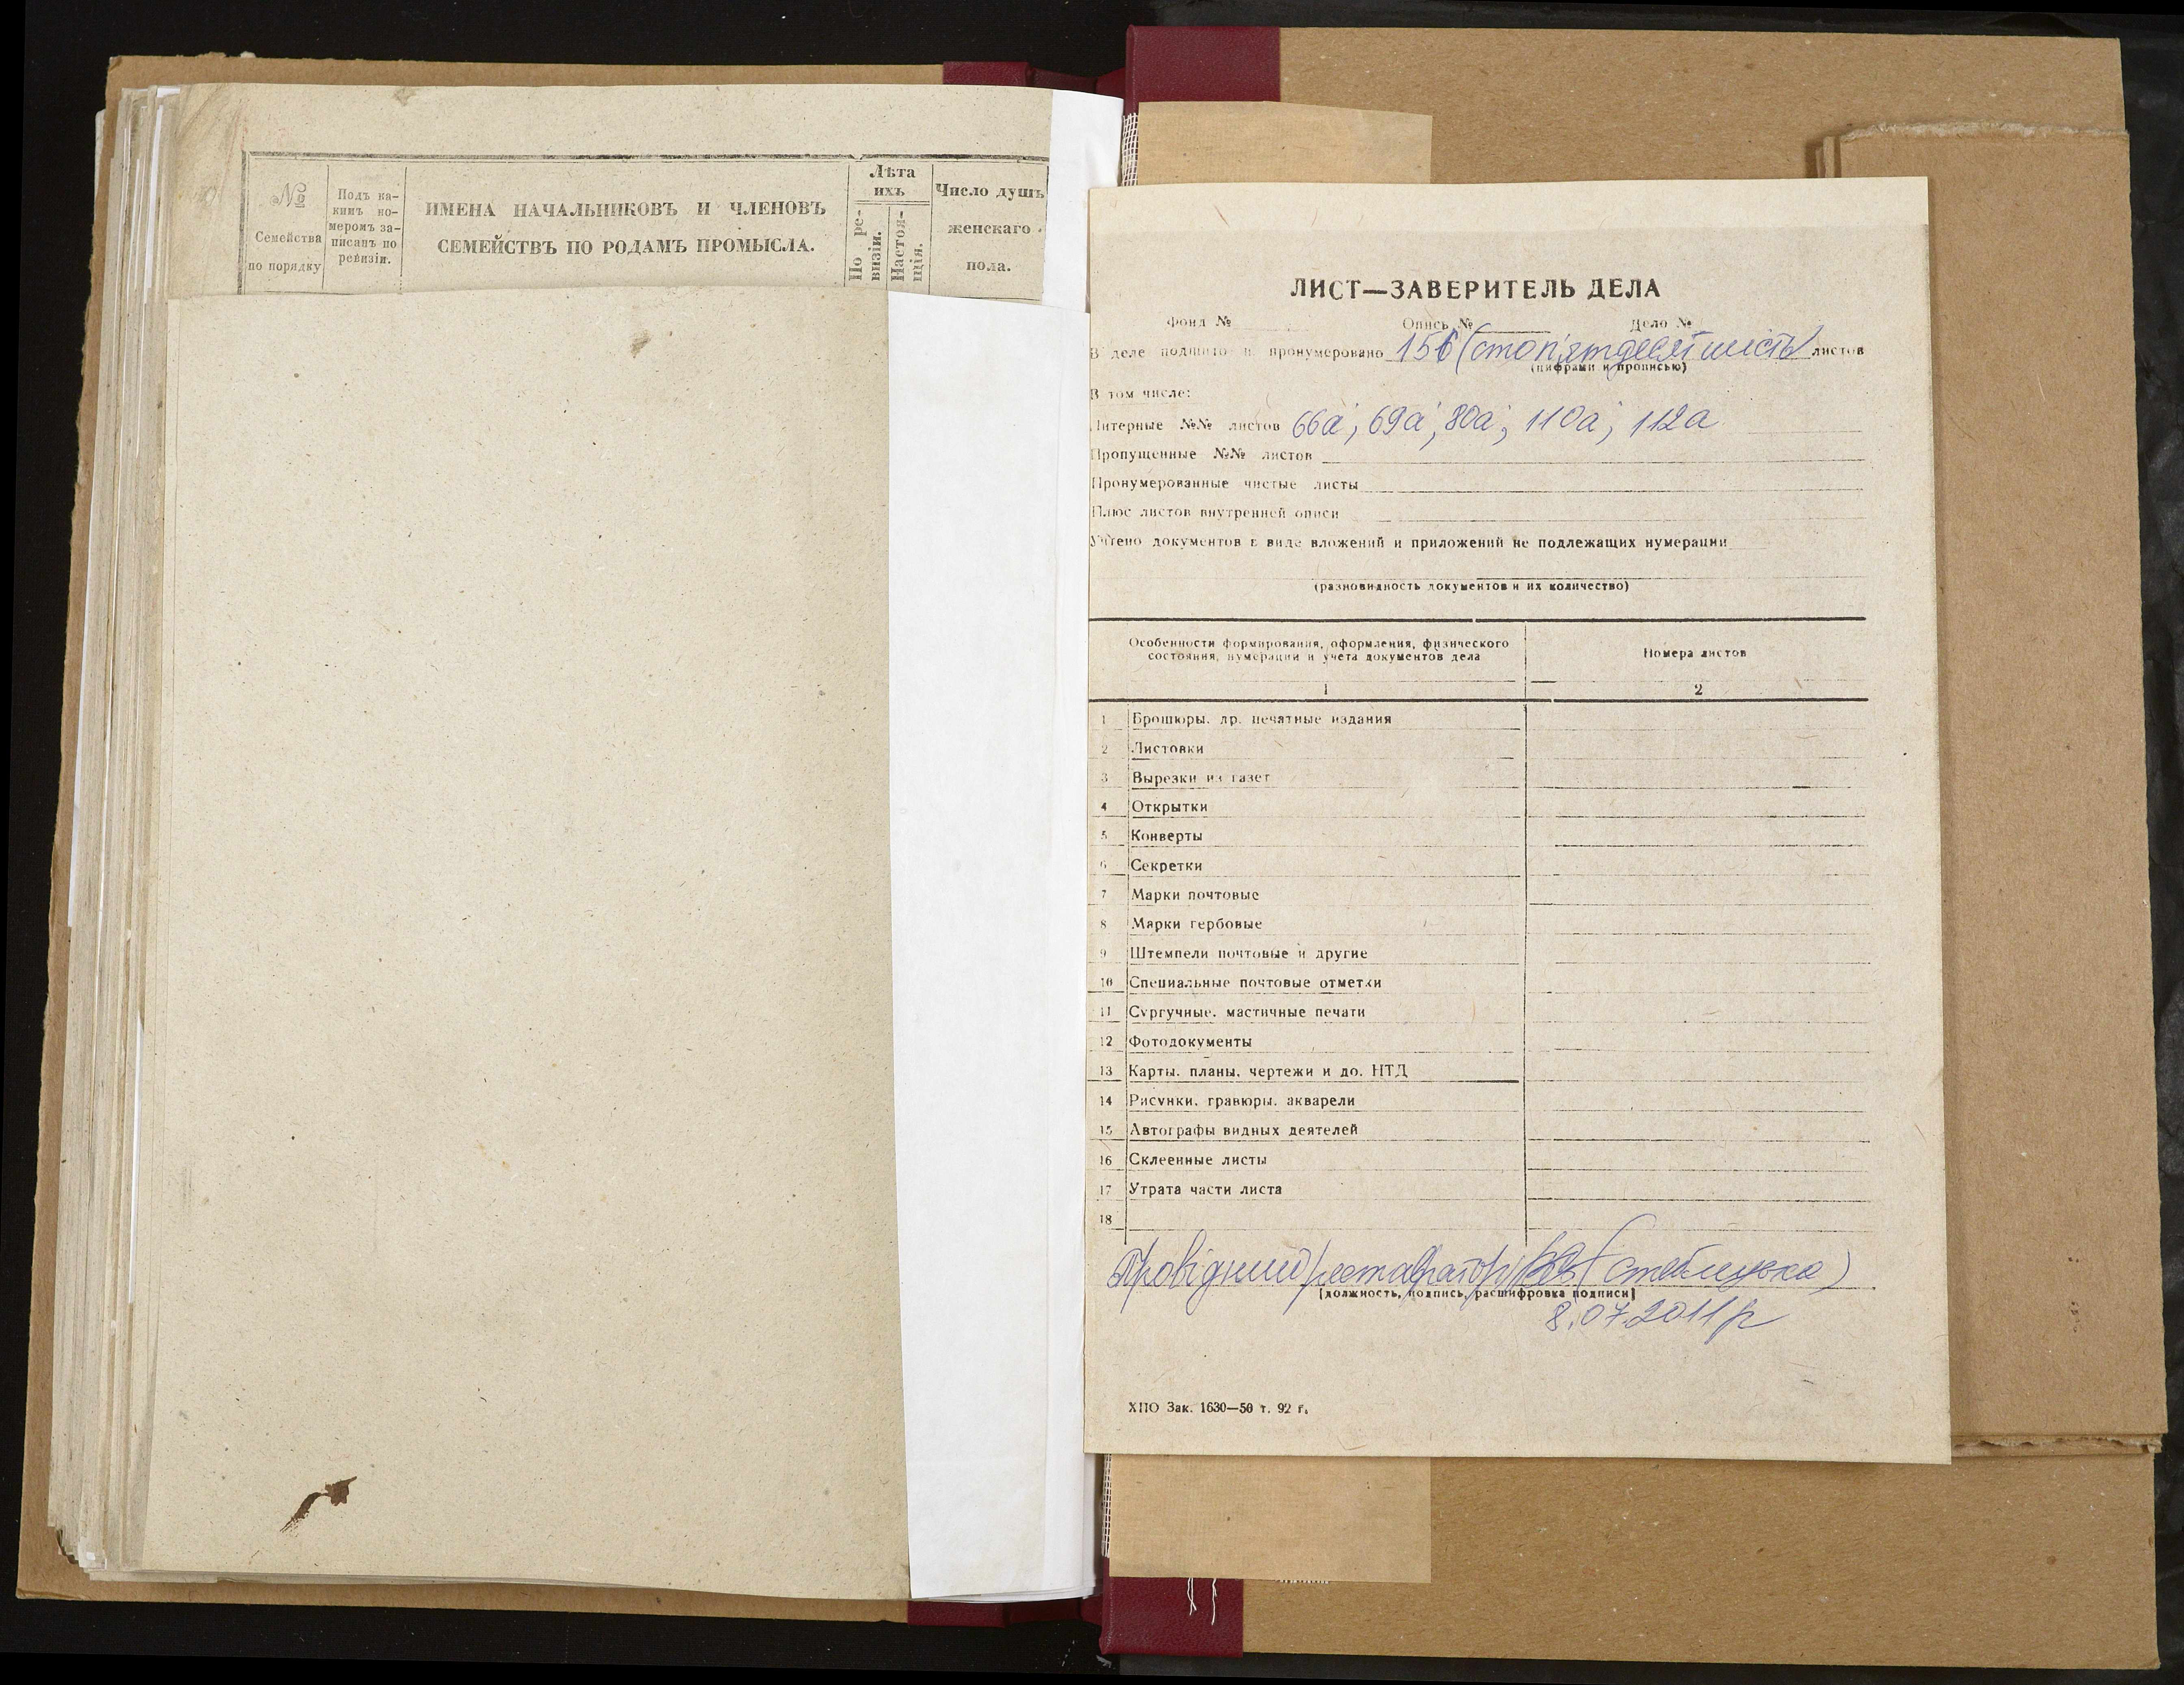 № Семейства по порядку
Подъ ка-
кимъ но-
меромъ за-
писанъ по
ревизіи.
ИМЕНА НАЧАЛЬНИКОВЪ И ЧЛЕНОВЪ
СЕМЕЙСТВЪ ПО РОДАМЪ ПРОМЫСЛА.
Лѣта
ихъ
По ре-
визіи.
Настоя-
щія.
Число душъ
женскаго
пола.
ЛИСТ—ЗАВЕРИТЕЛЬ ДЕЛА
Фонд № Опись № Дело №
В деле подшито и пронумеровано 156 (сто п'ятдесят шість) листов
(цифрами и прописью)
В том числе:
Литерные №№ листов 66а; 69а; 80а; 110а; 112а
Пропущенные №№ листов
Пронумерованные чистые листы
Плюс листов внутренней описи
Учтено документов в виде вложений и приложений не подлежащих нумерации
(разновидность документов и их количество)
Особенности формирования, оформления, физического
состояния, нумерации и учета документов дела
Номера листов
1 2
1 Брошюры, др. печатные издания
2 Листовки
3 Вырезки из газет
4 Открытки
5 Конверты
6 Секретки
7 Марки почтовые
8 Марки гербовые
9 Штемпели почтовые и другие
10 Специальные почтовые отметки
11 Сургучные, мастичные печати
12 Фотодокументы
13 Карты, планы, чертежи и до. НТД
14 Рисунки, гравюры, акварели
15 Автографы видных деятелей
16 Склеенные листы
17 Утрата части листа
18
Провідний реставратор
(должность, подпись, расшифровка подписи)
8.07.2011р
ХПО Зак. 1630—50 т. 92 г.